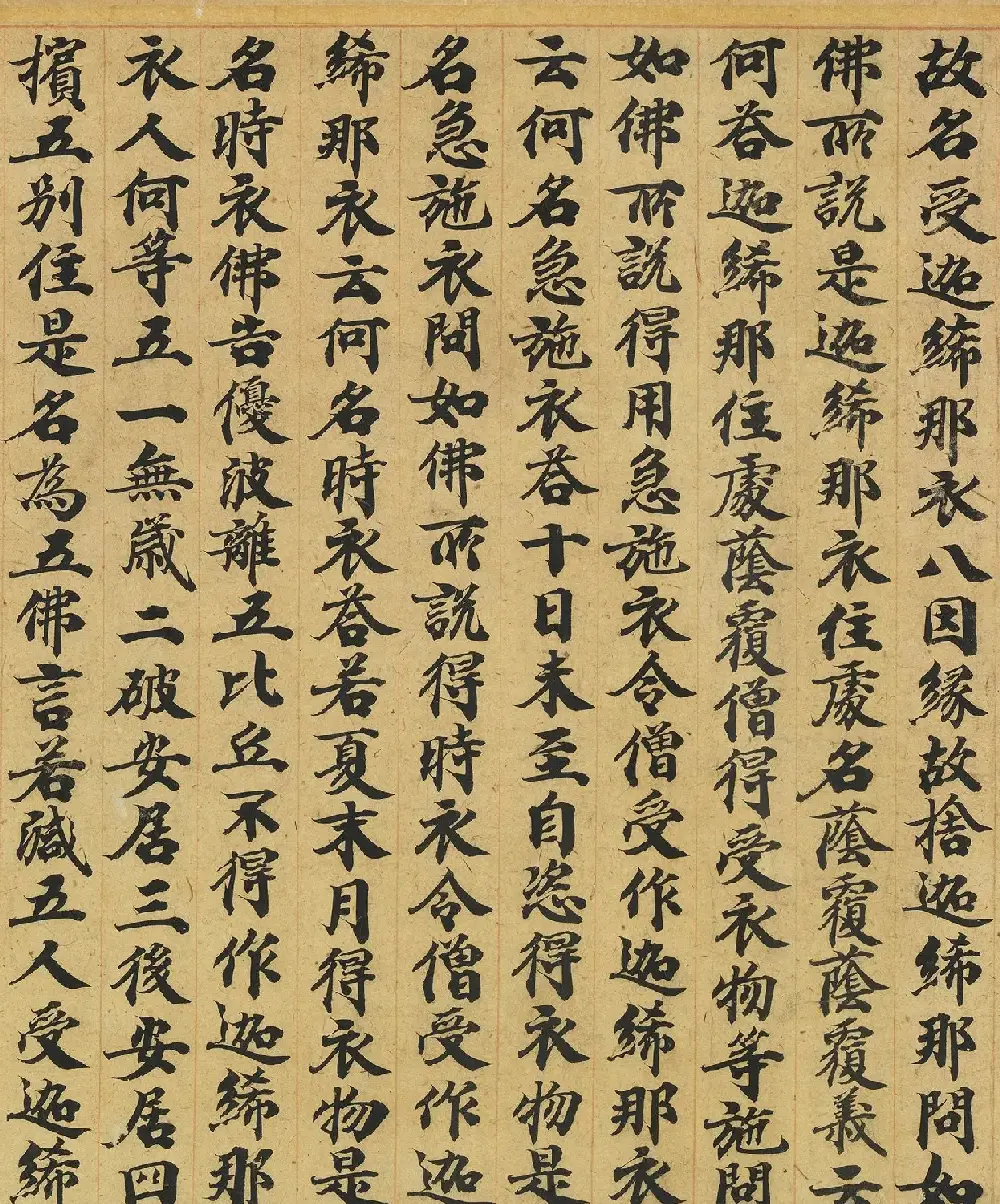 故名受迦絺那衣八因緣故捨迦絺那問如
佛所說是迦絺那衣住處名蔭覆蔭覆義云
何荅迦絺那住處蔭覆僧得受衣物等施問
如佛所說得用急施衣令僧受作迦絺那衣
云何名急施衣荅十日未至自恣得衣物是
名急施衣問如佛所說得時衣令僧受作迦
絺那衣云何名時衣荅若夏末月得衣物是
名時衣佛告優波離五比丘不得作迦絺那
衣人何等五一無歲二破安居三後安居四
擯五別住是名為五佛言若減五人受迦絺